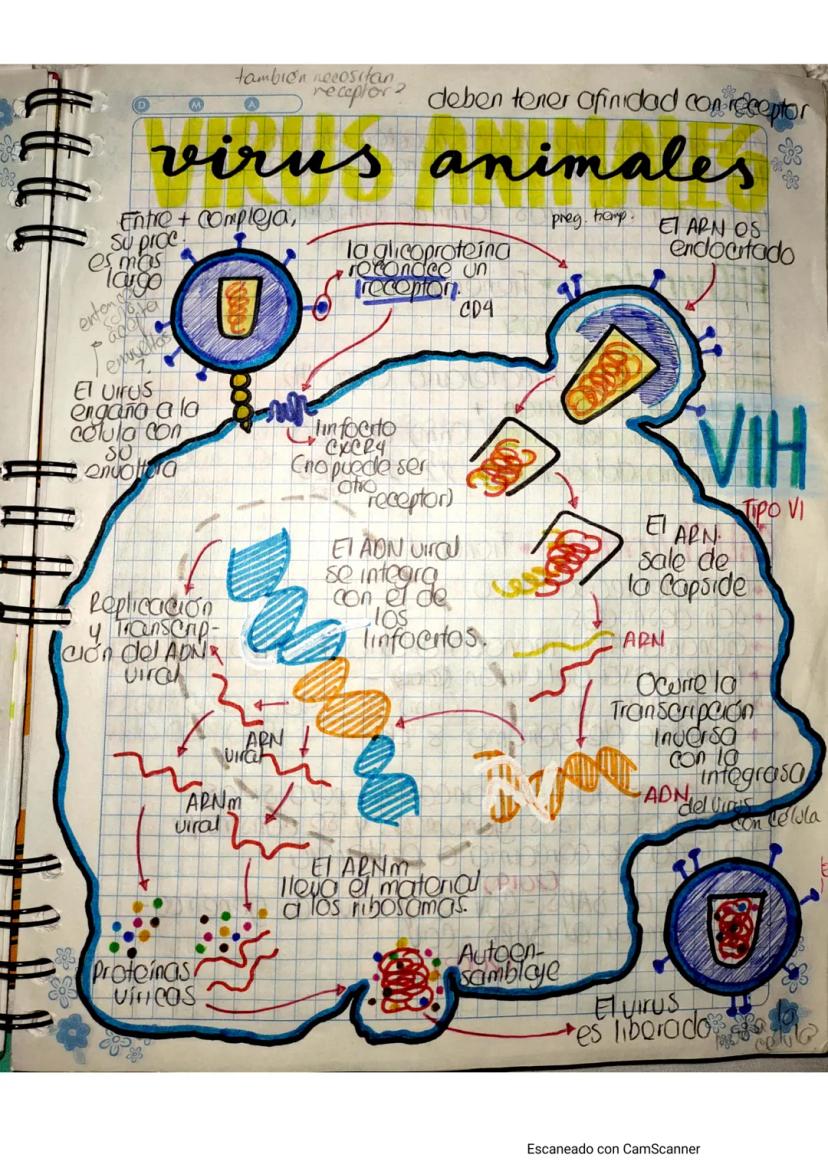 también necesitan
receptor?
deben tener afinidad con receptor
D M A
VIRUS ANIMALES
virus animales
Entre + compleja,
su proc.
es más
largo
preg. tramp.
El ARN es
endocitado
la glicoproteína
reconoce un
receptor.
CD4
El virus
engaña a la
célula con
su
envoltura
linfocito
CXCR4
(no puede ser
otro
receptor)
VIH
TIPO VI
El ARN
sale de
la capside
El ADN viral
se integra
con el de
los
linfocitos.
Replicación
y Transcrip-
ción del ADN
viral
ARN
Ocurre la
Transcripción
inversa
con la
integrasa
del virus
con célula
ADN
ARN
viral
ARNm
viral
El ARNm
lleva el material
a los ribosomas.
Proteínas
víricas
Autoen-
samblaje
El virus
es liberado
célula
Escaneado con CamScanner